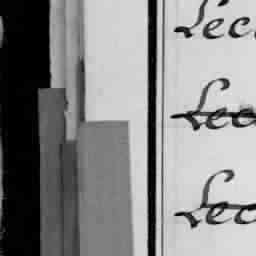 Lec
Lec
Lec